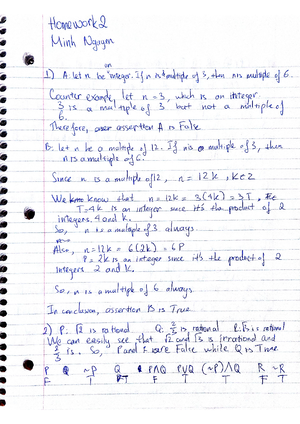 Homework 2
Minh Nguyen
an
1) A. let n be integer. If n is multiple of 3, then n is multiple of 6.
Counter example, let n = 3, which is an integer.
3 is a multiple of 3 but not a multiple of
6.
Therefore, our assertion A is False
B: let n be a multiple of 12. If n is a multiple of 3, then
n is a multiple of 6.
Since n is a multiple of 12, n = 12k, k∈Z
We know that n = 12k = 3(4k) = 3T.
T=4k is an integer since it's the product of 2
integers, 4 and k.
So, n is a multiple of 3 always
Also, n=12k = 6(2k) = 6P
P = 2k is an integer since it's the product of 2
Integers 2 and k.
So, n is a multiple of 6 always
In conclusion, assertion B is True
2) P: √2 is rational. Q: 2/3 is rational R: √3 is rational
We can easily see that √2 and √3 is irrational and
2/3 is. So, P and R are False while Q is True
P Q ~P Q P∧Q P∨Q (~P)∧Q R ~R
F T T F T T F T